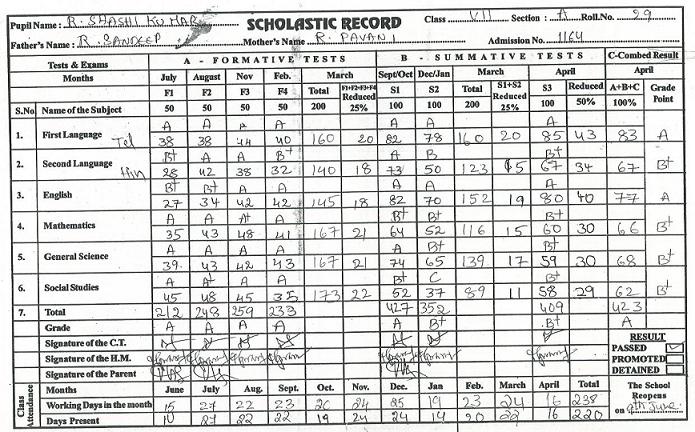 Pupil Name : R. SHASHI KUMAR SCHOLASTIC RECORD Class VII Section : A Roll.No. 29
Father's Name : R. SANDEEP Mother's Name : R. PAVANI Admission No. 1164
Tests & Exams A - FORMATIVE TESTS B - SUMMATIVE TESTS C-Combined Result
Months July August Nov Feb. March Sept/Oct Dec/Jan March April April
F1 F2 F3 F4 Total F1+F2+F3+F4 Reduced S1 S2 Total S1+S2 Reduced S3 Reduced A+B+C Grade Point
S.No Name of the Subject 50 50 50 50 200 25% 100 100 200 25% 100 50% 100%
A A A A A A A
1. First Language Tel 38 38 44 40 160 20 82 78 160 20 85 43 83 A
B+ A A B+ A B B+
2. Second Language Hin 28 42 38 32 140 18 73 50 123 15 67 34 67 B+
B+ B+ A A A A A
3. English 27 34 42 42 145 18 82 70 152 19 80 40 77 A
A A A+ A B+ B+ B+
4. Mathematics 35 43 48 41 167 21 64 52 116 15 60 30 66 B+
A A A A B+ B+ B+
5. General Science 39 43 42 43 167 21 74 65 139 17 59 30 68 B+
A A+ A A B+ C B+
6. Social Studies 45 48 45 35 173 22 52 37 89 11 58 29 62 B+
7. Total 212 248 259 233 427 352 409 423
Grade A A A A A B+ B+ A
Signature of the C.T. RESULT
Signature of the H.M. PASSED
PROMOTED
Signature of the Parent DETAINED
Class Attendance Months June July Aug. Sept. Oct. Nov. Dec. Jan Feb. March April Total The School Reopens on 9th June
Working Days in the month 15 27 22 23 20 24 25 19 23 24 16 238
Days Present 10 27 22 22 19 24 24 14 20 22 16 220